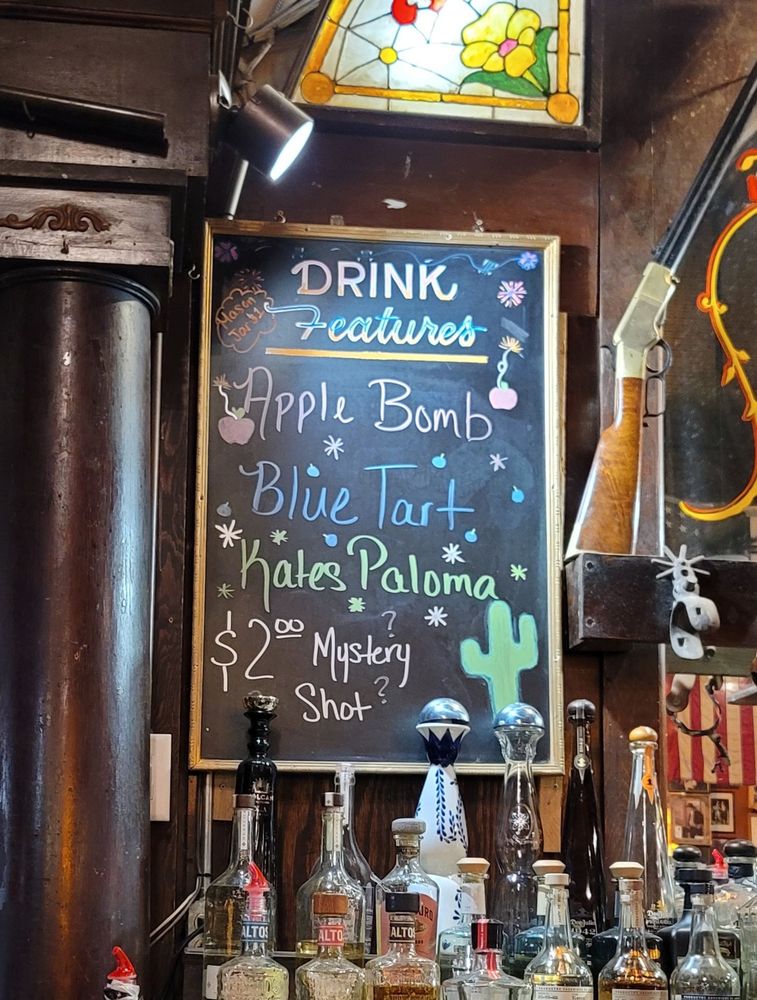 DRINK
Features
Mason
Jar $1
Apple Bomb
Blue Tart
Kates Paloma
$2.00 Mystery ?
Shot ?
ALTOS
ALTOS
ALTOS